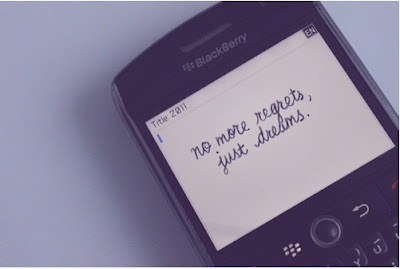 BlackBerry
EN
Title 2011
no more regrets,
just dreams.